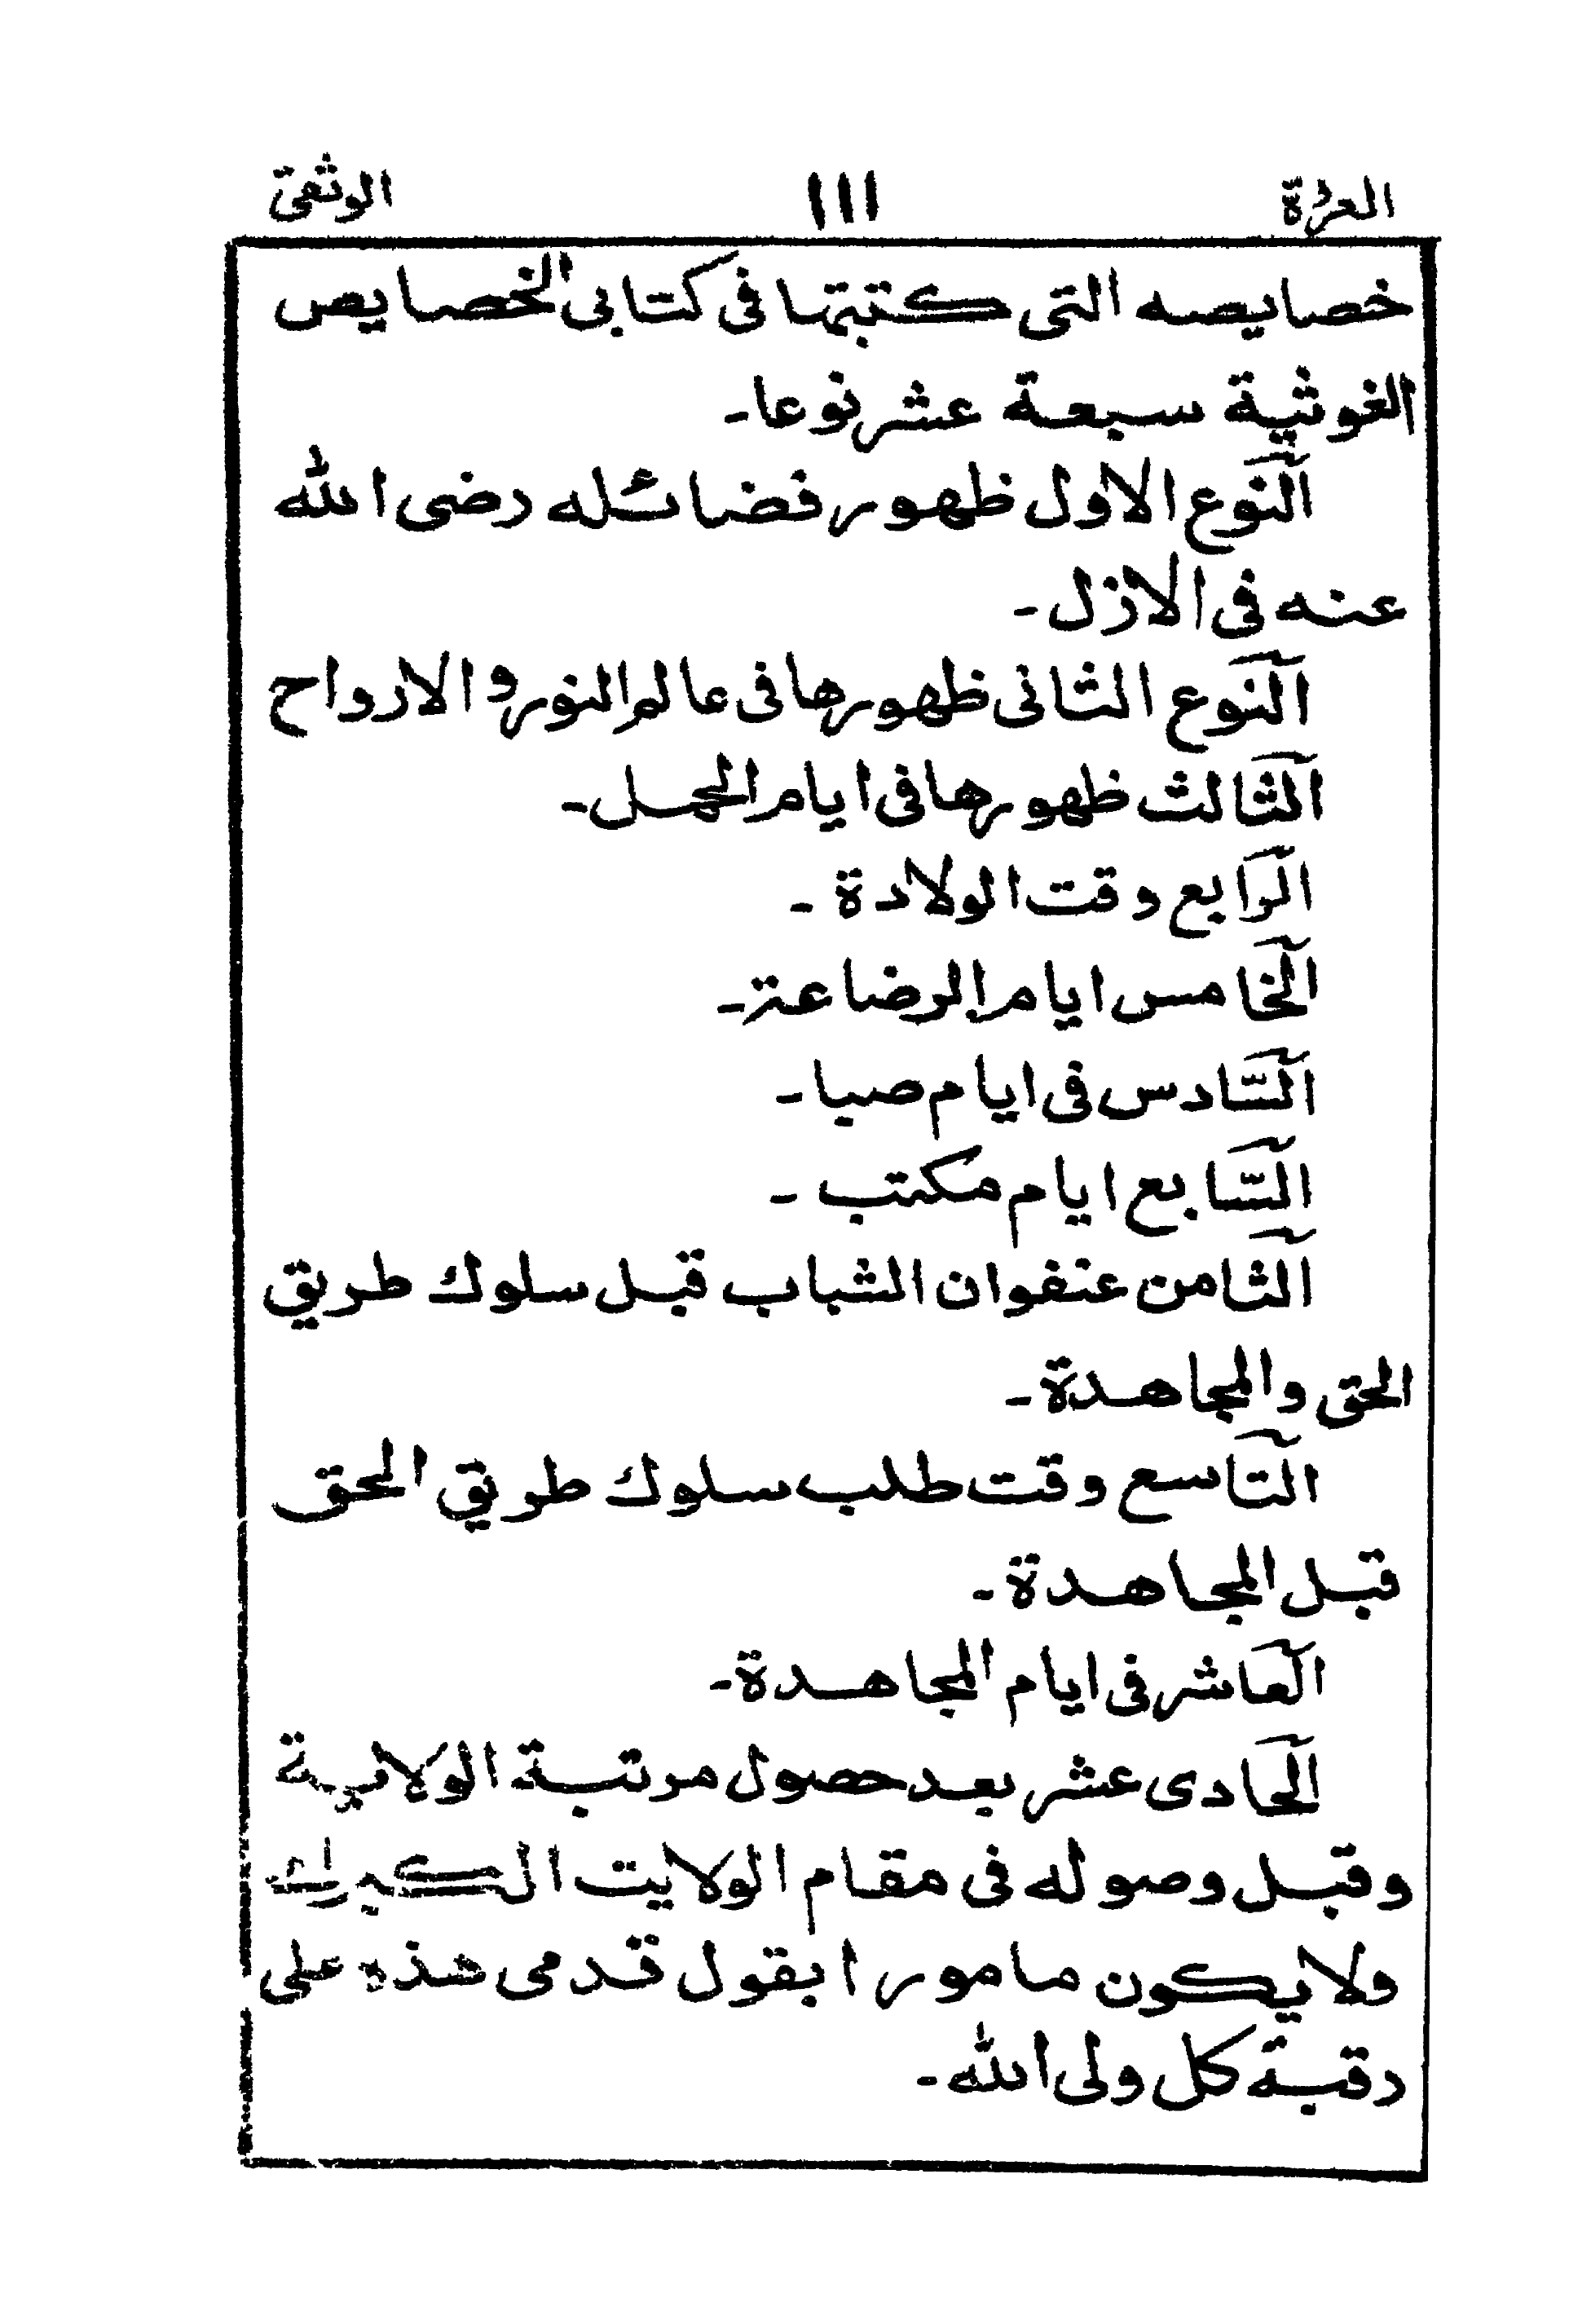 العروة ١١١ الوثقى
خصايصه التى كتبتها فى كتابى الخصايص
الغوثية سبعة عشر نوعا۔
اَلنَّوع الاول ظهور فضائله رضى الله
عنه فى الازل۔
اَلنَّوع الثانى ظهورها فى عالم النور و الارواح
اَلثالث ظهورها فى ايام الحمل۔
اَلرابع وقت الولادة۔
اَلخامس ايام الرضاعة۔
اَلسّادس فى ايام صبا۔
اَلسّابع ايام مكتب۔
اَلثامن عنفوان الشباب قبل سلوك طريق
الحق والمجاهدة۔
اَلتاسع وقت طلب سلوك طريق الحق
قبل المجاهدة۔
اَلعاشر فى ايام المجاهدة۔
اَلحادى عشر بعد حصول مرتبة الولاية
وقبل وصوله فى مقام الولايت
ولا يكون مامورا بقول قدمى هذه على
رقبة كل ولى الله۔